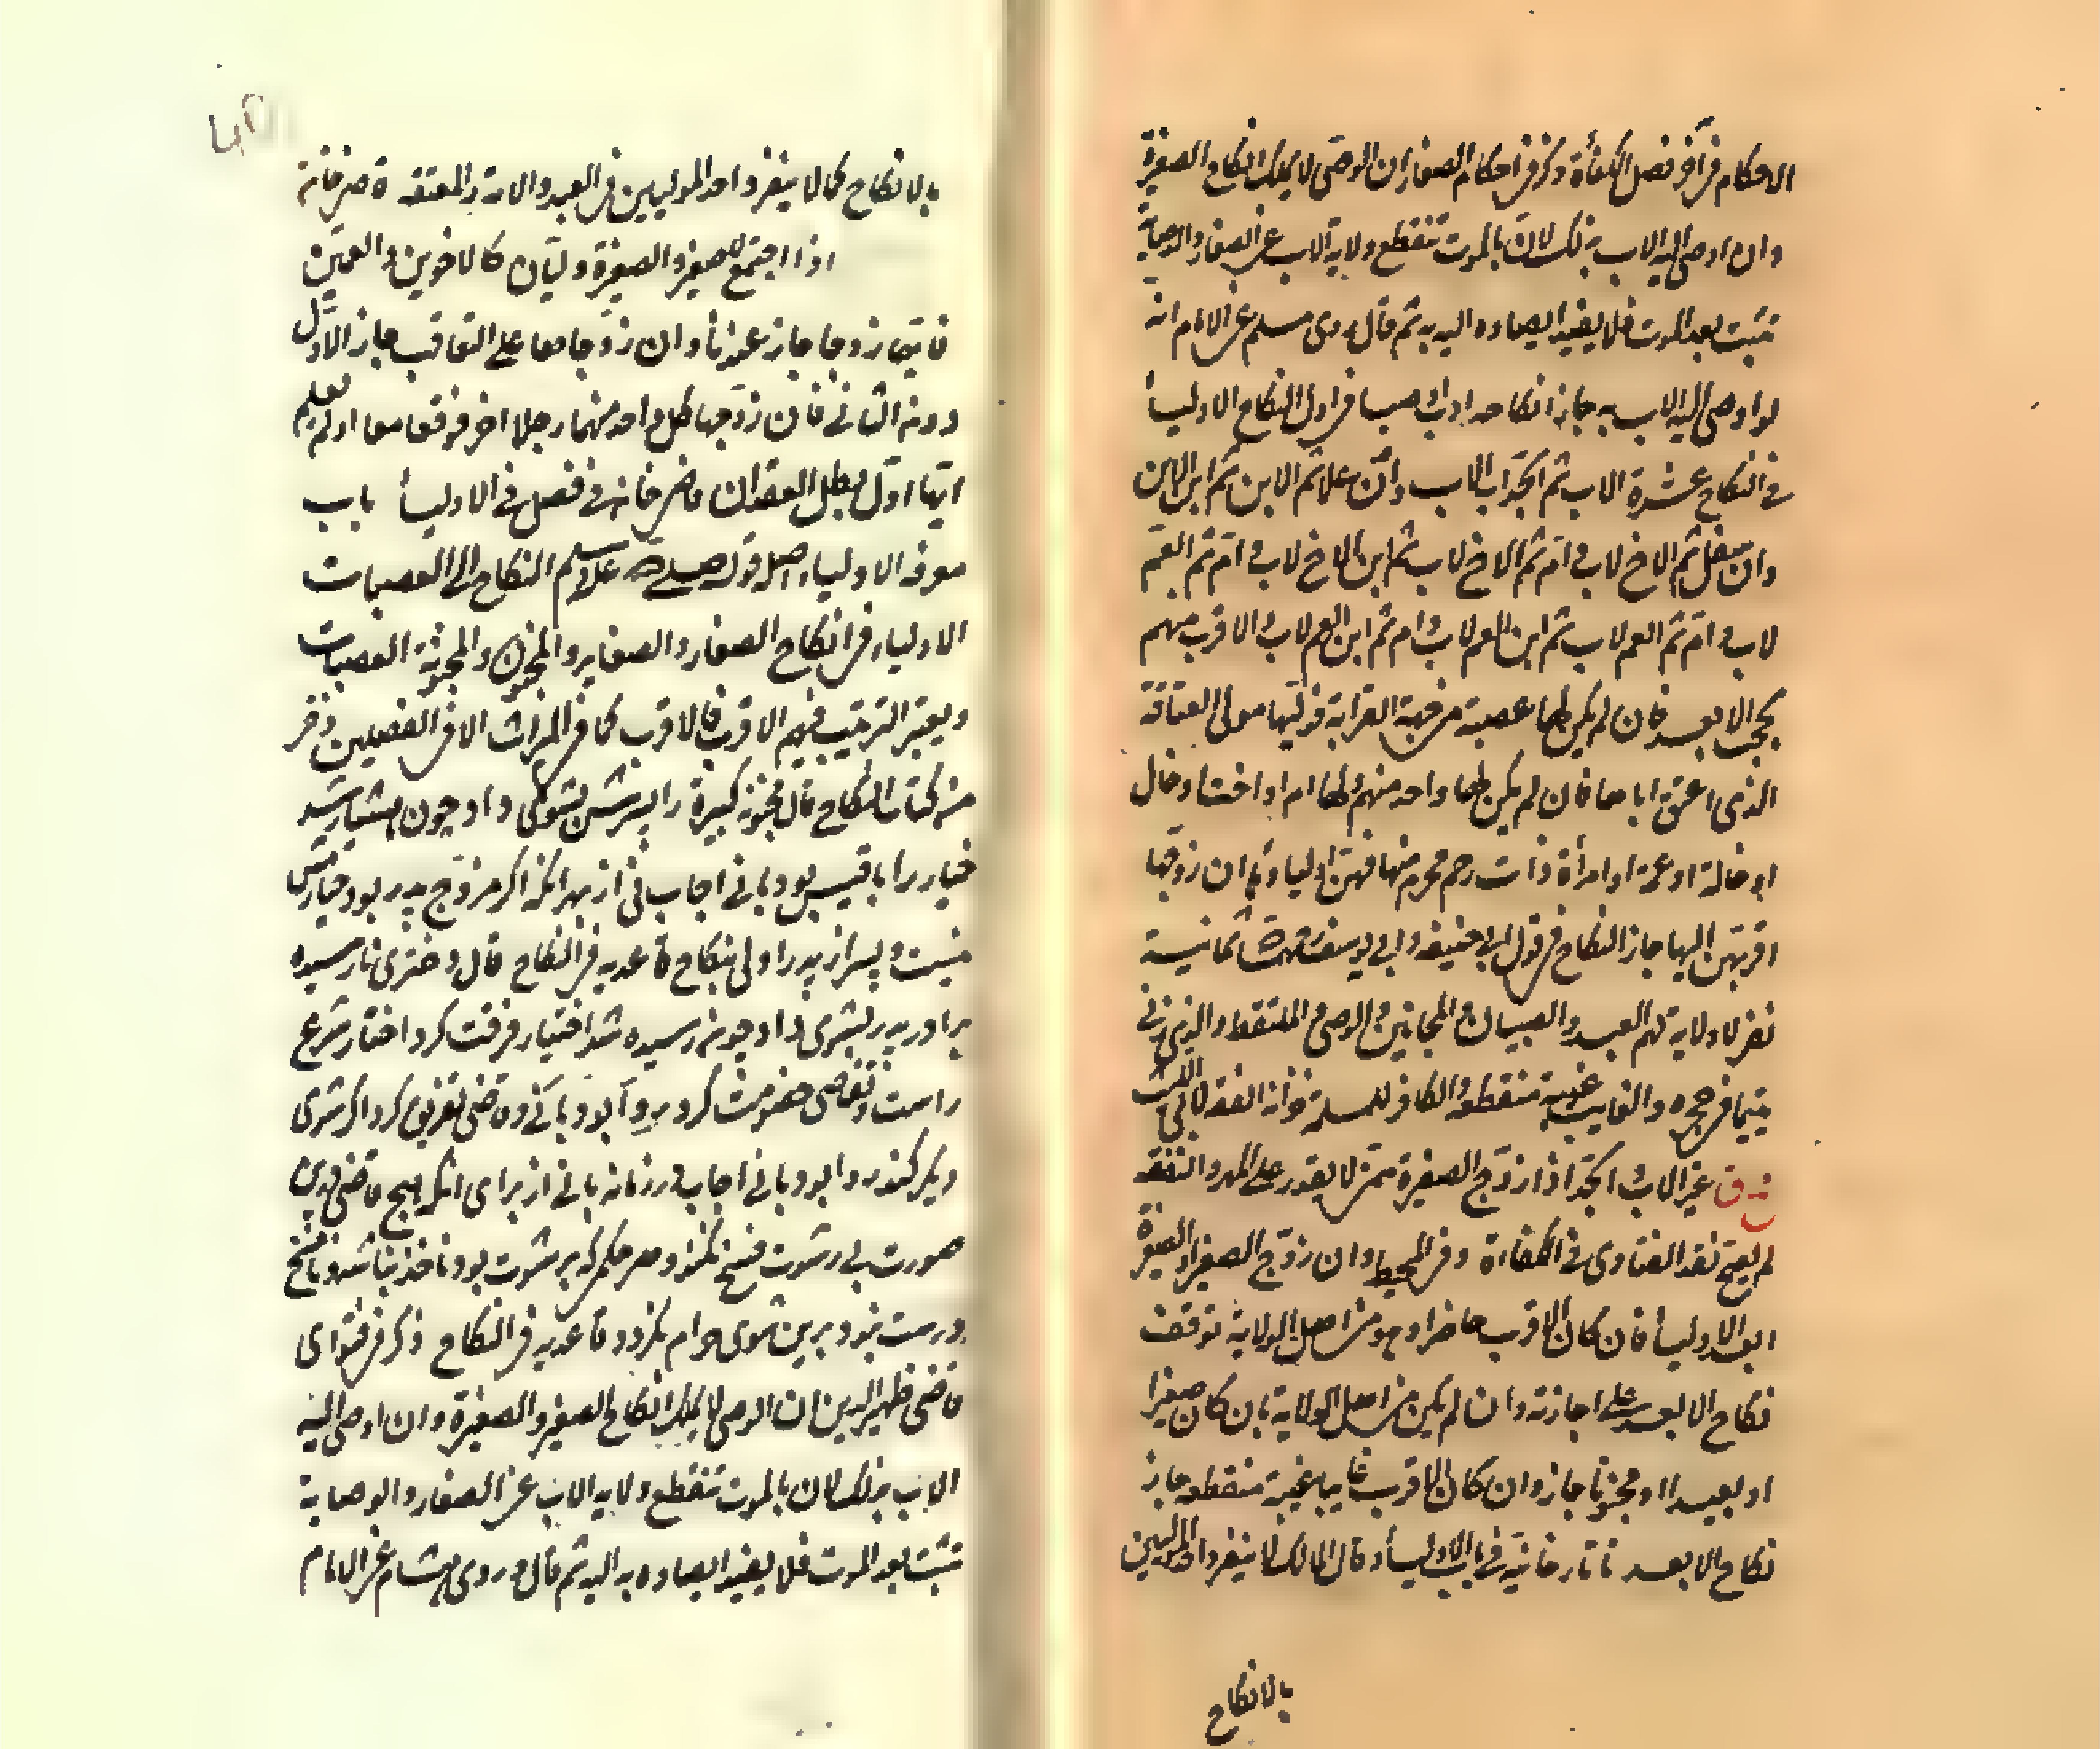 الاحكام فى آخر فصل الكفأة وذكر فى احكام الصغار ان الوصى لا يملك انكاح الصغيرة
وان اوصى اليه الاب بذلك لان بالموت تنقطع ولاية الاب عن الصغار والوصاية
تثبت بعد الموت فلا يفيد ايصاوه اليه به ثم قال وروى مسلم عن الامام انه
لو اوصى اليه الاب به جاز انكاحه فى اول النكاح الاوليأ
فى النكاح عشرة الاب ثم الجد اب الاب وان علا ثم الابن ثم ابن الابن
وان سفل ثم الاخ لاب و ام ثم الاخ لاب ثم ابن الاخ لاب و ام ثم العم
لاب و ام ثم العم لاب ثم ابن العم لاب و ام ثم ابن العم لاب و الاقرب منهم
يحجب الابعد فان لم يكن لها عصبة من جهة القرابة فوليها مولى العتاقة
الذى اعتق اباها فان لم يكن لها واحد منهم ولها ام او اخت او خال
او خالة او عمة او امرأة ذات رحم محرم منها فهن اولياوها ان زوجها
اقربهن اليها جاز النكاح فى قول ابى حنيفه وابى يوسف ثمانية
نفر لا ولاية لهم العبد والصبيان و المجانين و الوصى و الملتقط والذى ربى
يتيما فى حجره والغايب غيبة منقطعة والكافر للمسلمة خزانة الفقه لابى الليث
غير الاب و الجد اذا زوج الصغيرة ممن لا يقدر على المهر والنفقه
لم يصح نقد الفتاوى فى الكفاءة وفى المحيط وان زوج الصغير او الصغيرة
ابعد الاوليأ فان كان الاقرب حاضرا وهو من اصل الولاية توقف
نكاح الابعد على اجازته وان لم يكن من اصل الولاية بان كان صغيرا
او بعيدا او مجنونا جاز وان كان الاقرب غايبا غيبة منقطعه جاز
نكاح الابعد تاتارخانيه فى باب الاوليأ وقال المالك لا ينفرد احد الموليين
بالانكاح
بالانكاح كما لا ينفرد احد الموليين فى العبد والامة والمعتقه قاضى خان
اذا اجتمع للصغير والصغيرة وليان كالاخوين والعمين
فايهما زوجا جاز عندنا وان زوجا معا على التعاقب جاز الاول
دون الثانى فان زوجها كل واحد منهما رجلا اخر فوقعا معا او لم يعلم
ايهما اول بطل العقدان قاضى خان فى فصل فى الاوليأ باب
معرفه الاولياء اصل قوله صلى الله عليه وسلم النكاح الى العصبات
الاولياء فى انكاح الصغار والصغاير والمجنون والمجنونة العصبات
ويعتبر الترتيب فيهم الاقرب فالاقرب كما فى الميراث الا فى الفصلين
من كتاب النكاح قال مجنونه كبيرة را پسرش بشوئى داد چون هشيار شد
خيار را باقيست بود يا نى اجاب نى از بهر انكه اكر مزوج پدر بود خيارش
نيست و پسر از پدر اولى بنكاح قاعديه فى النكاح قال دخترى نارسيده
برادر پدر بشوى داد چون رسيده شد اختيار فرقت كرد اختيار شرع
راست و بقاضى خصومت كرد روا بود يا نى و قاضى تفريق كرد اكر شوى
ديكر كند روا بود يا نى اجاب از براى انكه هيچ قاضى درين
صورت بى رشوت فسخ نكند و هر حكم كه بر شوت بود نافذ نباشد و نافسخ
درست نبود برين شوى حرام نكردد قاعديه فى النكاح ذكر فى فتواى
قاضى ظهير الدين ان الوصى لا يملك انكاح الصغير والصغيرة وان اوصى اليه
الاب بذلك لان بالموت تنقطع ولايه الاب عن الصغار والوصاية
تثبت بعد الموت فلا يفيد ايصاوه به اليه ثم قال وروى هشام عن الامام